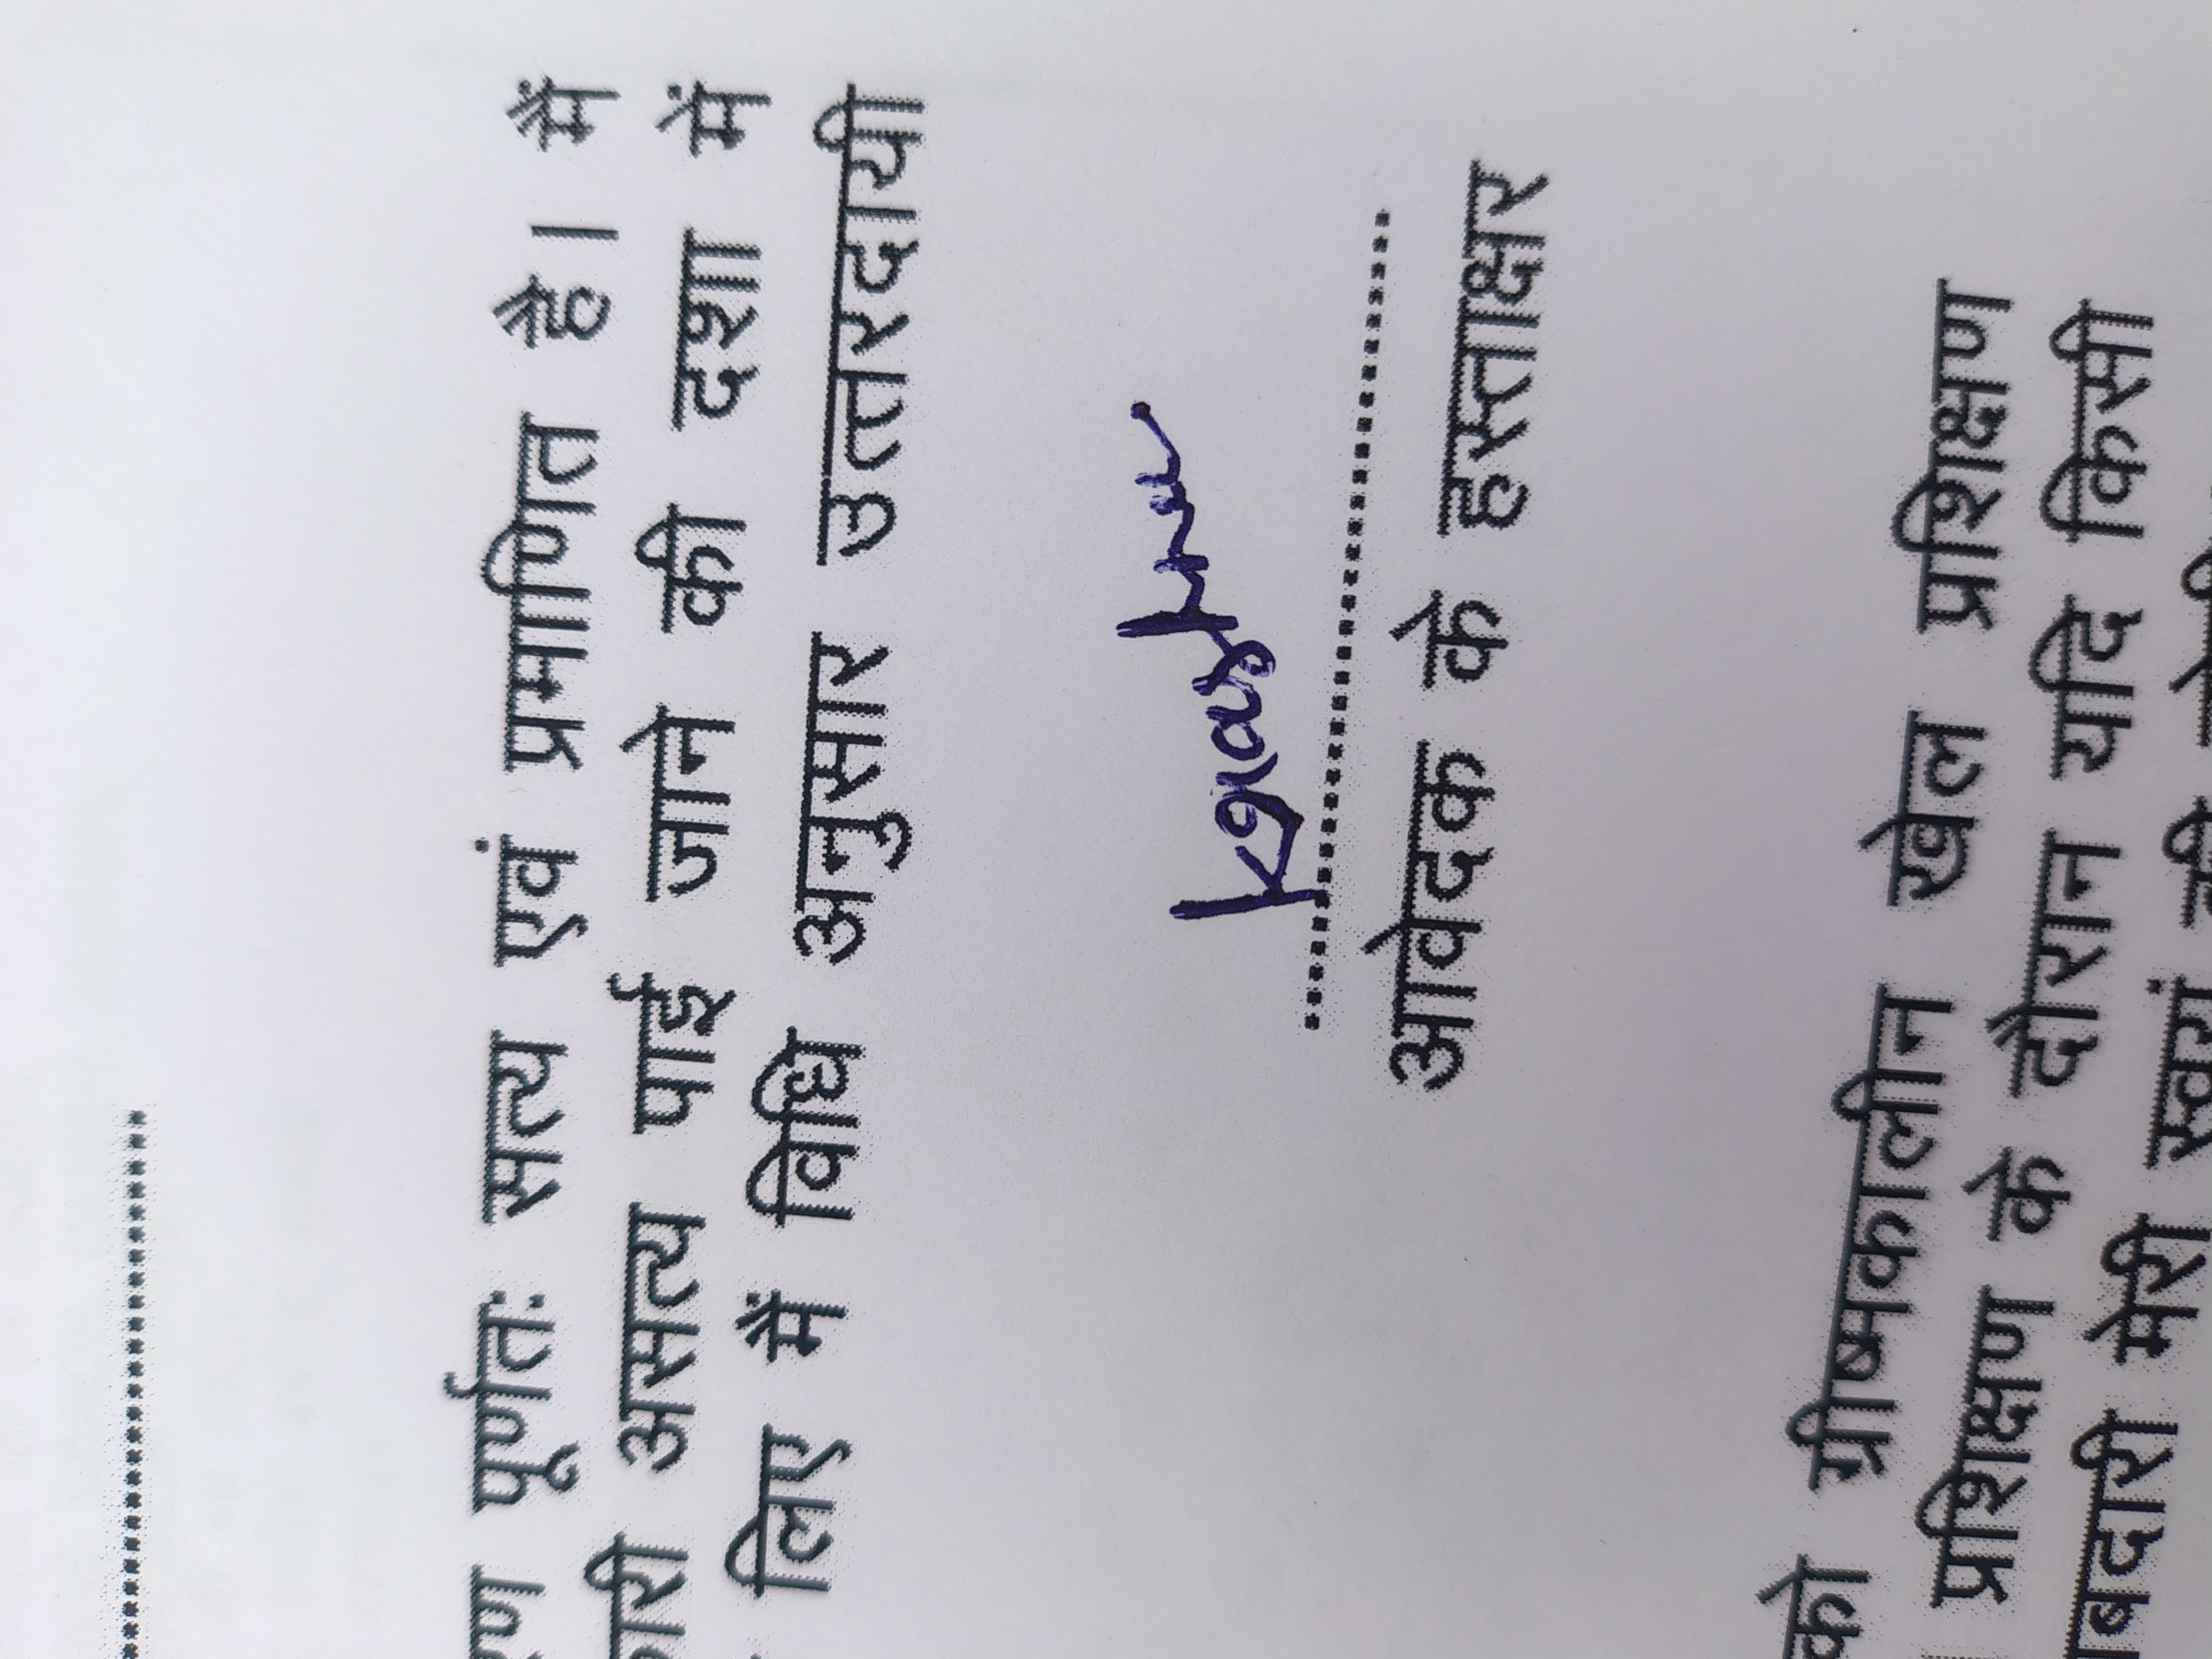 पूर्णतः सत्य एवं प्रमाणित है। मैं
असत्य पाई जाने की दशा में
लिए मैं विधि अनुसार उत्तरदायी
................................................
आवेदक के हस्ताक्षर
को ग्रीष्मकालीन खेल प्रशिक्षण
प्रशिक्षण के दौरान यदि किसी
मेरी स्वयं की